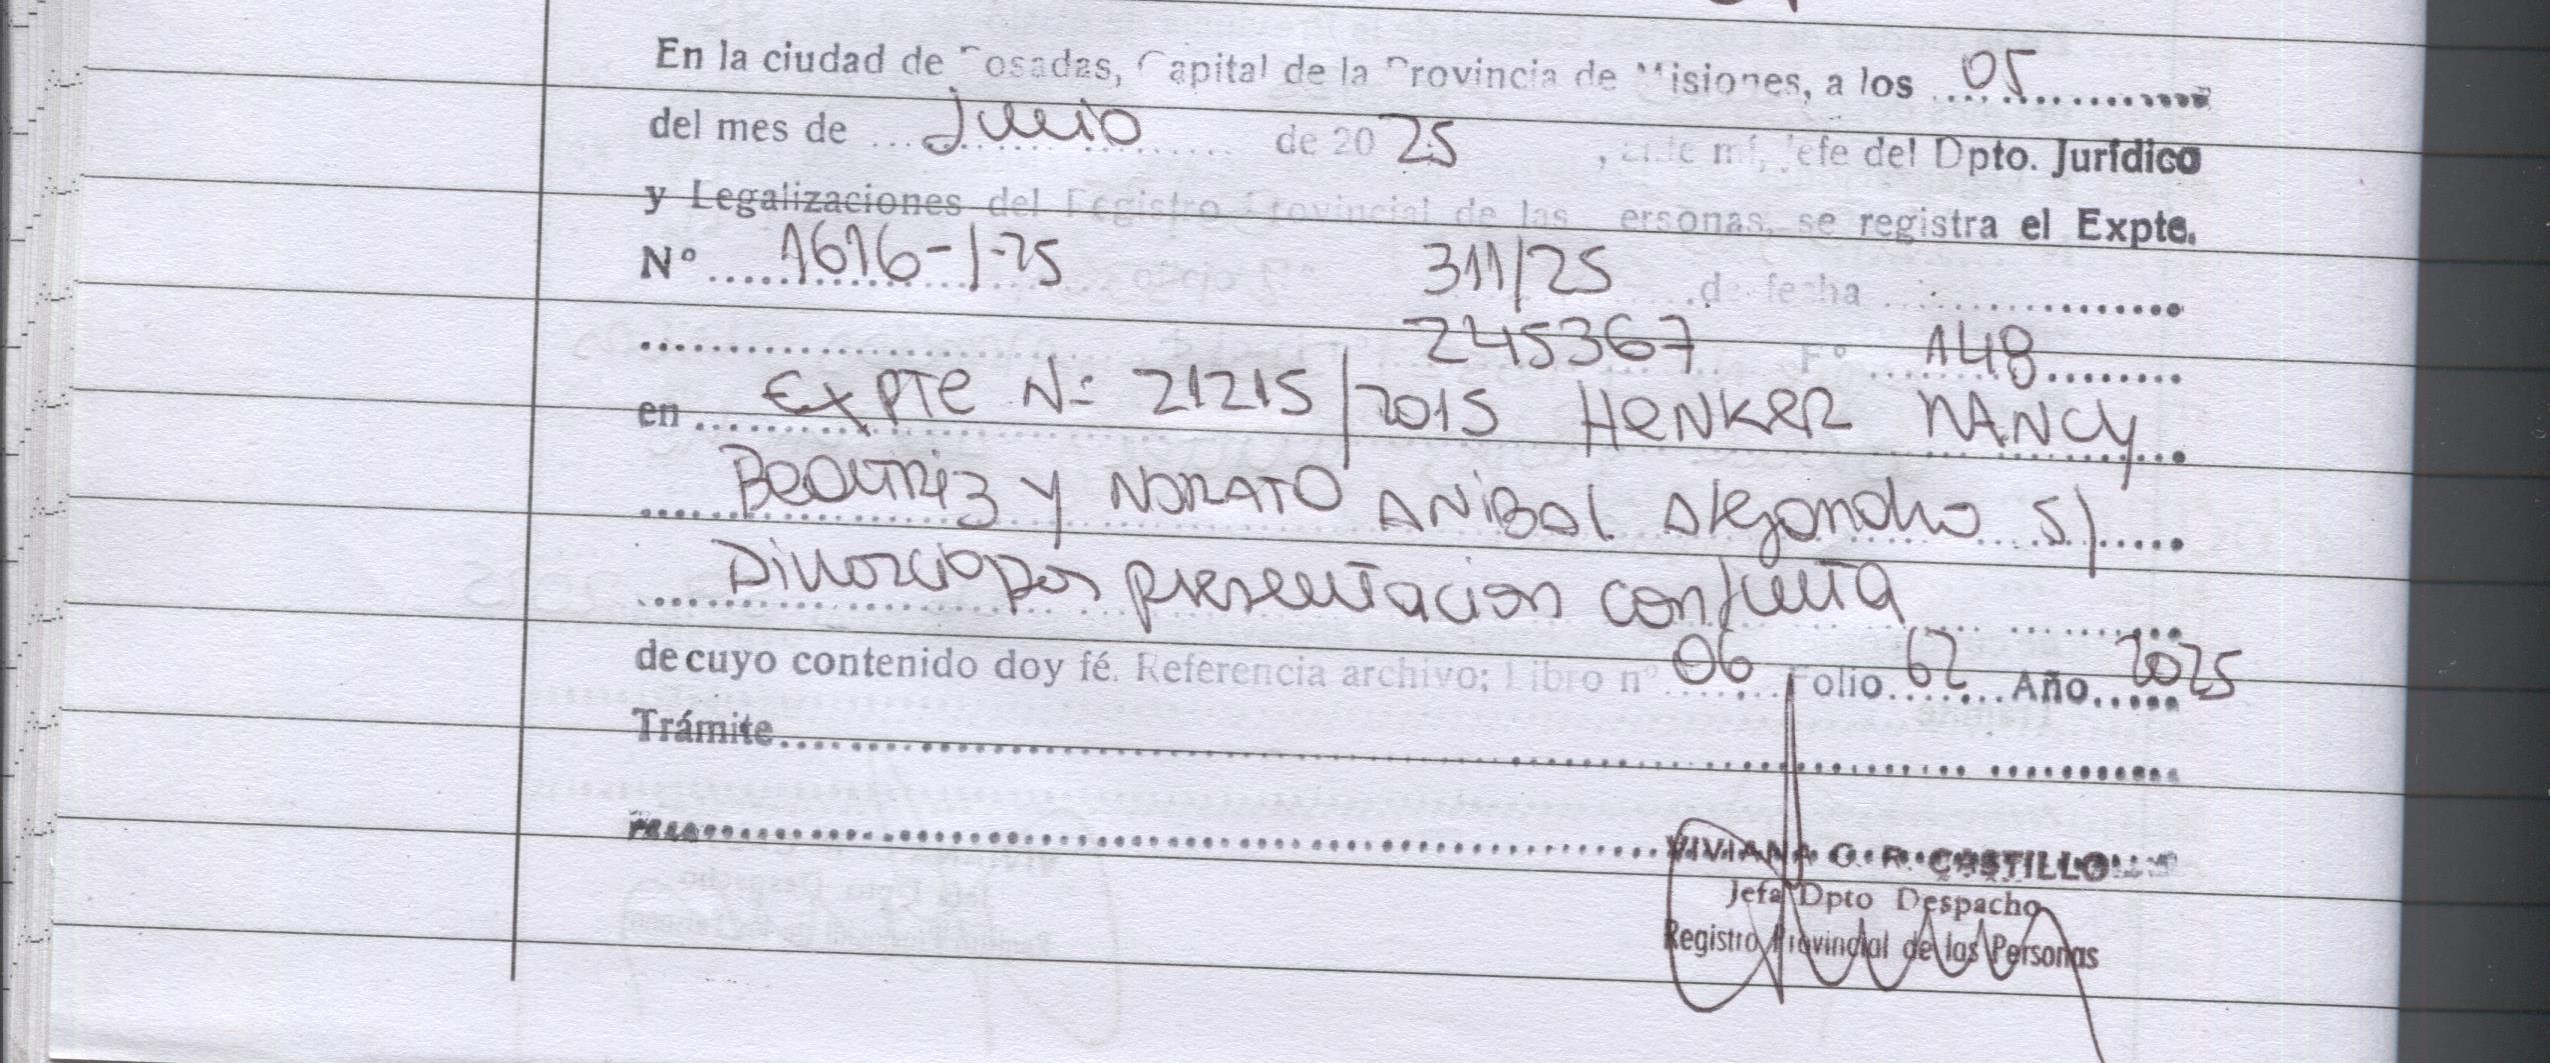 En la ciudad de Posadas, Capital de la Provincia de Misiones, a los 05
del mes de Junio de 2025, ante mí, Jefe del Dpto. Jurídico
y Legalizaciones del Registro Provincial de las Personas, se registra el Expte.
Nº 1616-1-25 311/25 de fecha
245367 Fº 148
en Expte N= 21215/2015 HENKER NANCY
Beatriz y NORATO ANiBAL Alejandro S/
Divorcio por presentacion conjunta
de cuyo contenido doy fé. Referencia archivo: Libro nº 06 Folio 62 Año 2025
Trámite
VIVIANA C. R. CASTILLO
Jefa Dpto Despacho
Registro Provincial de las Personas